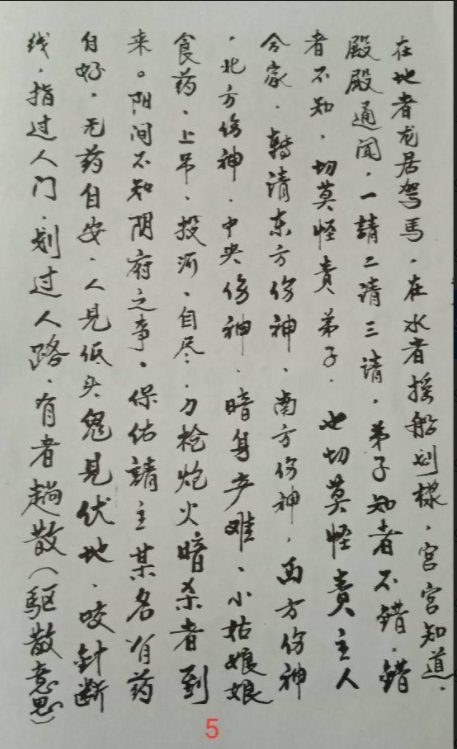 在地者龙居驾馬，在水者摇船划樑，宫宫知道，
殿殿通闻，一請二请三请，弟子知者不错，错
者不知，切莫怪责弟子，也切莫怪責主人
合家，转请东方伤神、南方伤神、西方伤神
、北方伤神、中央伤神、暗身产难、小姑娘娘
食药、上吊、投河、自尽、刀枪炮火暗杀者到
来。阳间不知阴府之事，保佑請主某名有药
自好，无药自安，人见低头鬼見伏地，咬針断
线，指过人门，划过人路，有者趟散（驱散意思）
5